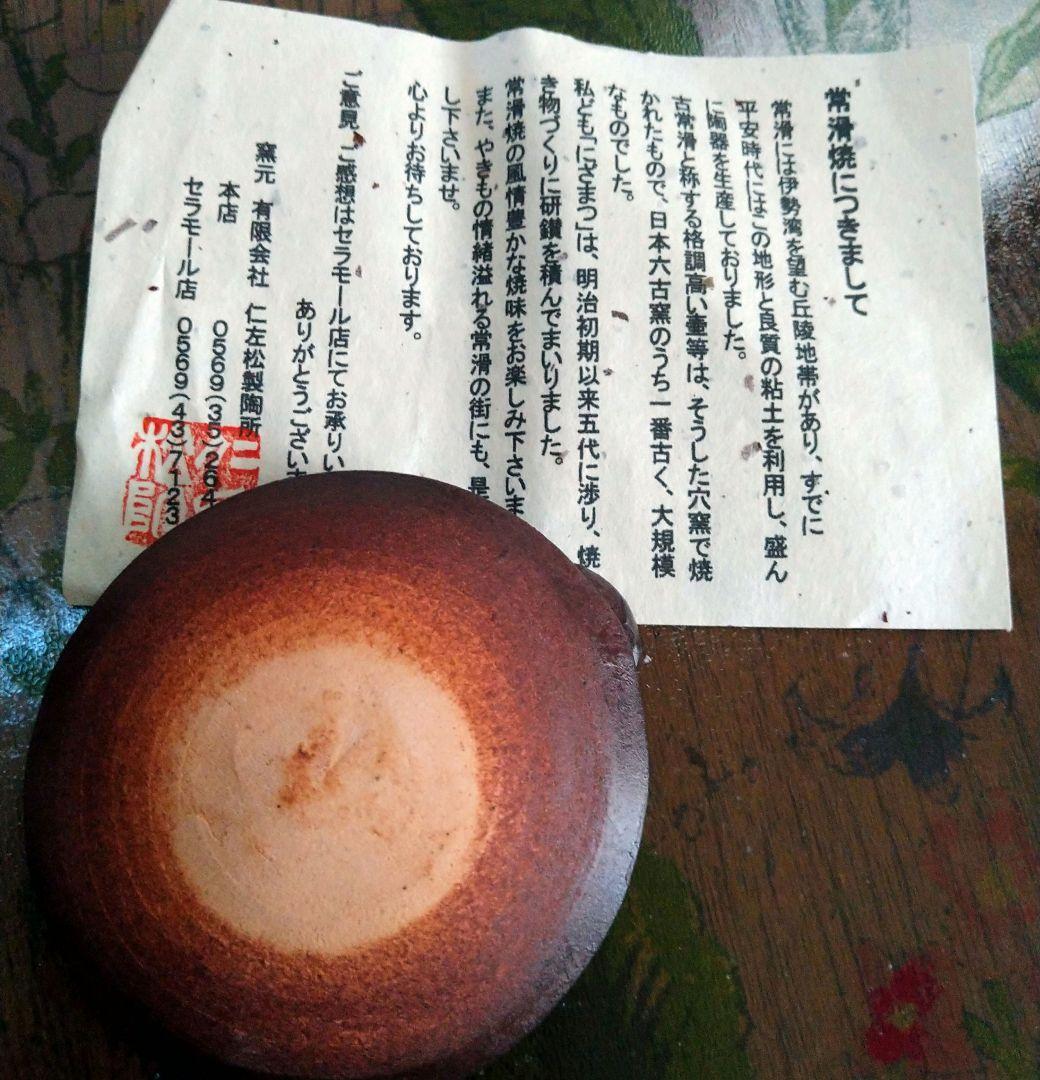 常滑焼につきまして
常滑には伊勢湾を望む丘陵地帯があり、すでに
平安時代にはこの地形と良質の粘土を利用し、盛ん
に陶器を生産しておりました。
古常滑と称する格調高い壷等は、そうした穴窯で焼
かれたもので、日本六古窯のうち一番古く、大規模
なものでした。
私ども「にざまつ」は、明治初期以来五代に渉り、焼
き物づくりに研鑽を積んでまいりました。
常滑焼の風情豊かな焼味をお楽しみ下さいま
また、やきもの情緒溢れる常滑の街にも、是
し下さいませ。
心よりお待ちしております。
ご意見、ご感想はセラモール店にてお承りい
ありがとうござい
窯元 有限会社 仁左松製陶所
本店 0569(35)264
セラモール店 0569(43)7123